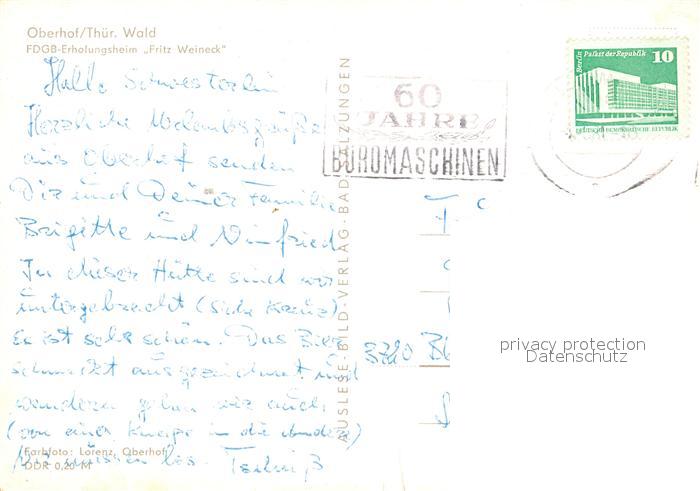 Oberhof/Thür. Wald
FDGB-Erholungsheim „Fritz Weineck"
Hallo Schwesterlein
Herzliche Urlaubsgrüße
aus Oberhof senden
Dir und Deiner Familie
Brigitte und Winfried
In dieser Hütte sind wir
untergebracht (siehe Kreuz)
Es ist sehr schön. Das Bier
schmeckt ausgezeichnet und
wandern gehen wir auch,
(von einer Kneipe in die andere)
Wir müssen los.
Farbfoto: Lorenz, Oberhof
DDR 0,20 M
AUSLESE-BILD-VERLAG-BAD SALZUNGEN
60
JAHRE
BÜROMASCHINEN
Berlin Palast der Republik 10
DEUTSCHE DEMOKRATISCHE REPUBLIK
privacy protection
Datenschutz